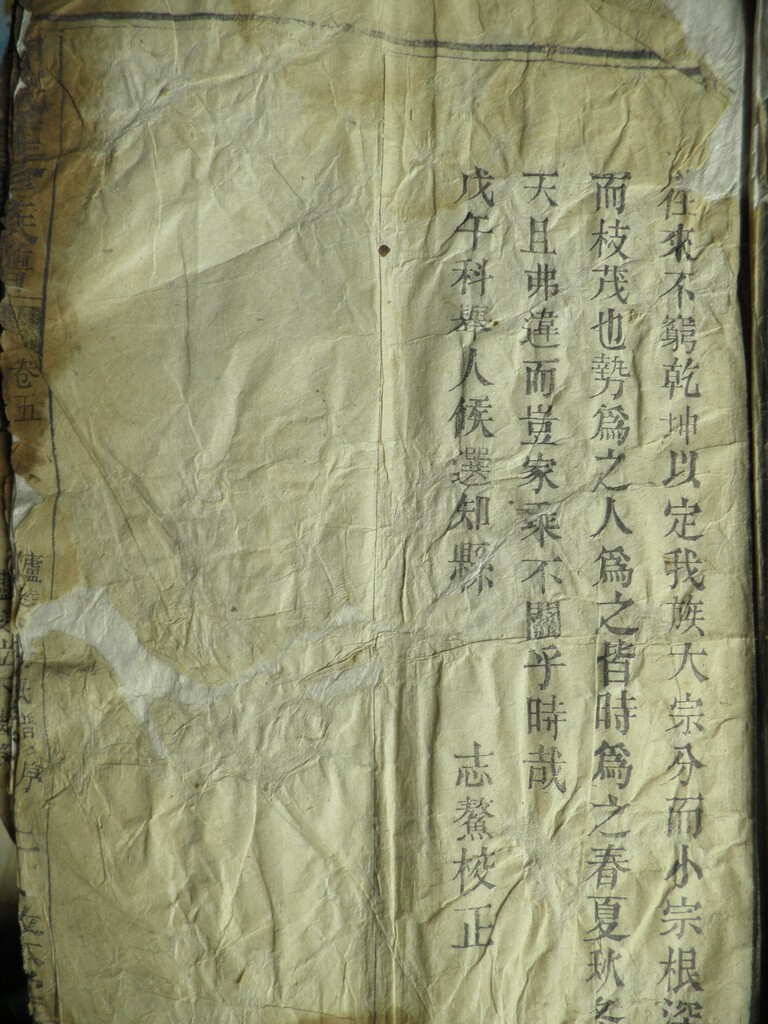 往來不窮乾坤以定我族大宗分而小宗根深
而枝茂也勢為之人為之皆時為之春夏秋冬
天且弗違而豈家乘不關乎時哉
戊午科舉人候選知縣 志鰲校正
卷五